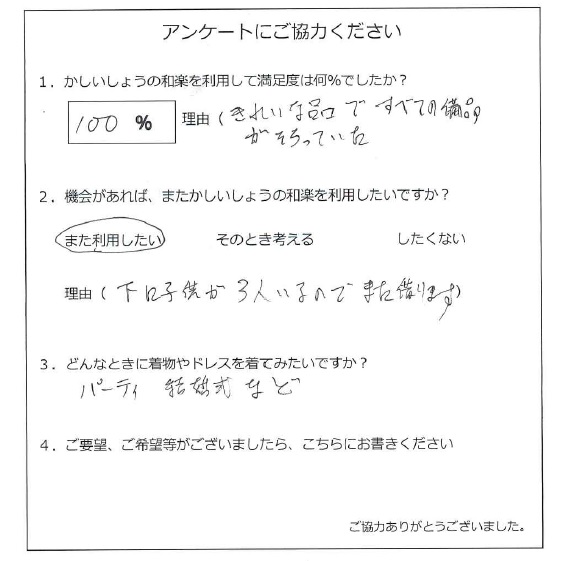 アンケートにご協力ください
1．かしいしょうの和楽を利用して満足度は何％でしたか？
100 % 理由（きれいな品で すべての備品
がそろっていた）
2．機会があれば、またかしいしょうの和楽を利用したいですか？
また利用したい そのとき考える したくない
理由（下に子供が3人いるので また借ります）
3．どんなときに着物やドレスを着てみたいですか？
パーティ 結婚式 など
4．ご要望、ご希望等がございましたら、こちらにお書きください
ご協力ありがとうございました。